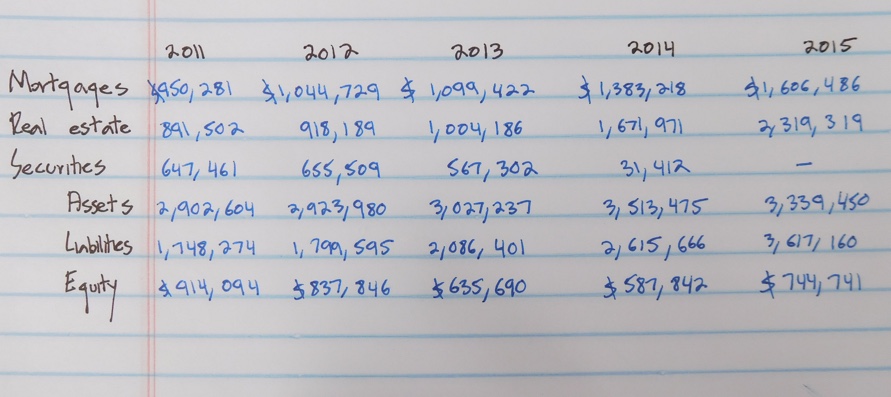 2011 2012 2013 2014 2015
Mortgages $950,281 $1,044,729 $1,099,422 $1,383,218 $1,606,486
Real estate 891,502 918,189 1,004,186 1,671,971 2,319,319
Securities 647,461 655,509 567,302 31,412 —
Assets 2,902,604 2,923,980 3,027,237 3,513,475 3,339,450
Liabilities 1,748,274 1,799,595 2,086,401 2,615,666 3,617,160
Equity $914,094 $837,846 $635,690 $587,842 $744,741